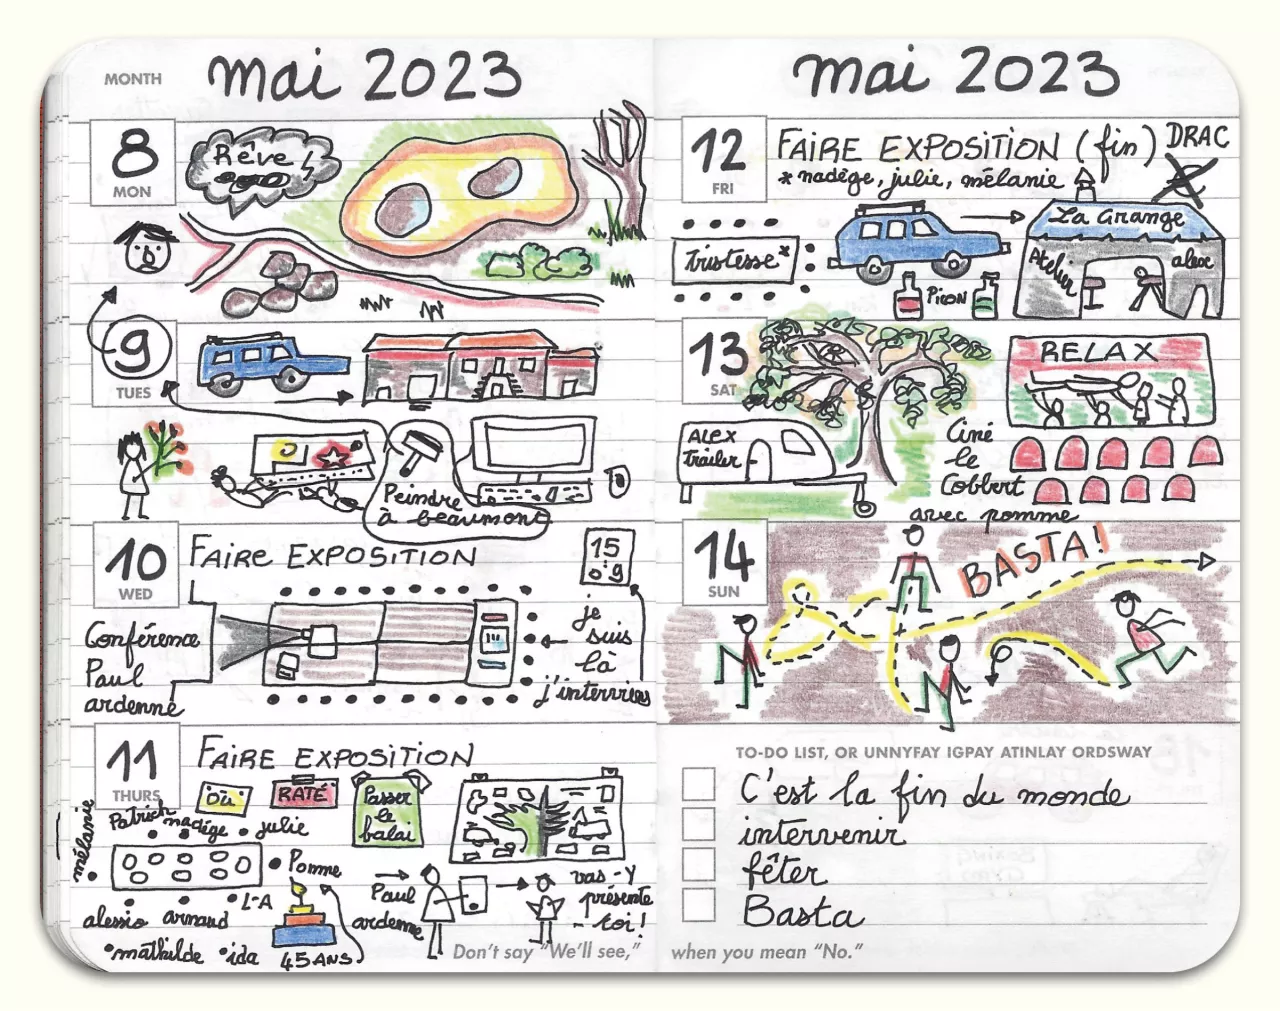 MONTH
mai 2023
8
MON
Rêve
9
TUES
Peindre
à beaumont
10
WED
FAIRE EXPOSITION
15
Conférence
Paul
ardenne
je
suis
là
j'interviens
11
THURS
FAIRE EXPOSITION
OÙ
RATÉ
Passer
le
balai
mélanie
Patrich
nadège
julie
Pomme
L-A
alessio
armand
mathilde
ida
45 ANS
Paul
ardenne
vas-y
présente
-toi!
Don't say "We'll see,"
mai 2023
12
FRI
FAIRE EXPOSITION (fin)
DRAC
* nadège, julie, mélanie
Tristesse*
PICON
La Grange
Atelier
alex
13
SAT
ALEX
trailer
RELAX
Ciné
le
Cobbert
avec pomme
14
SUN
BASTA!
TO-DO LIST, OR UNNYFAY IGPAY ATINLAY ORDSWAY
C'est la fin du monde
intervenir
fêter
Basta
when you mean "No."